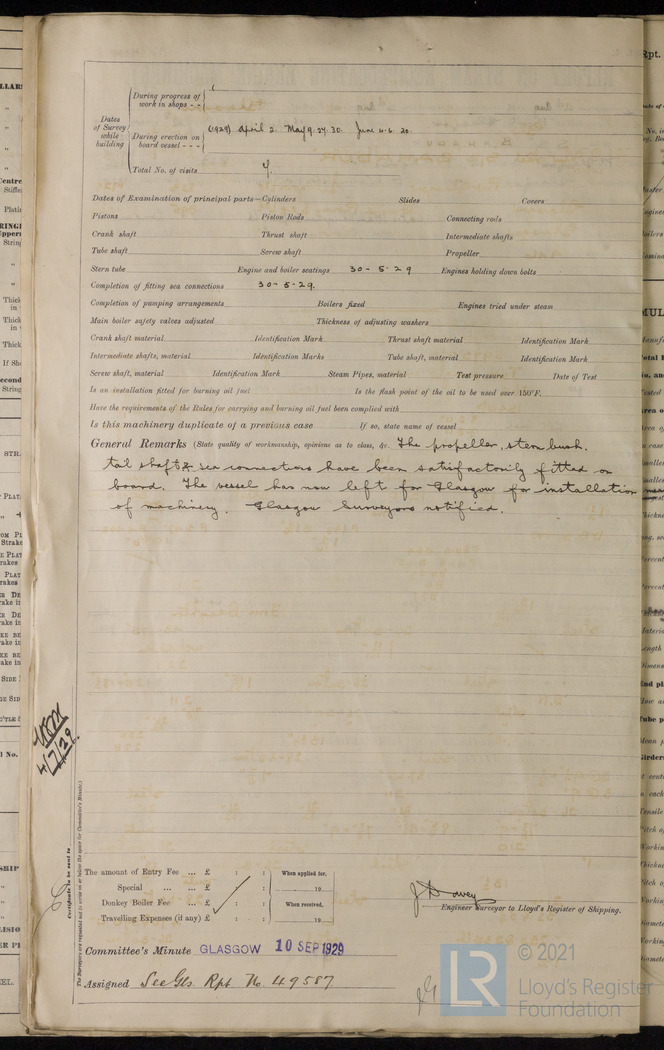 During progress of
work in shops - -
Dates
of Survey
while
building
During erection on
board vessel - - -
(1929) April 2. May 9. 27. 30. June 4. 6. 20.
Total No. of visits 7.
Dates of Examination of principal parts—Cylinders Slides Covers
Pistons Piston Rods Connecting rods
Crank shaft Thrust shaft Intermediate shafts
Tube shaft Screw shaft Propeller
Stern tube Engine and boiler seatings 30-5-29 Engines holding down bolts
Completion of fitting sea connections 30-5-29.
Completion of pumping arrangements Boilers fixed Engines tried under steam
Main boiler safety valves adjusted Thickness of adjusting washers
Crank shaft material Identification Mark Thrust shaft material Identification Mark
Intermediate shafts, material Identification Marks Tube shaft, material Identification Mark
Screw shaft, material Identification Mark Steam Pipes, material Test pressure Date of Test
Is an installation fitted for burning oil fuel Is the flash point of the oil to be used over 150°F.
Have the requirements of the Rules for carrying and burning oil fuel been complied with
Is this machinery duplicate of a previous case If so, state name of vessel
General Remarks (State quality of workmanship, opinions as to class, &c. The propeller, stern bush.
tail shaft & sea connections have been satisfactorily fitted on
board. The vessel has now left for Glasgow for installation
of machinery. Glasgow Surveyors notified.
4/7/29.
Certificate to be sent to
(The Surveyors are requested not to write on or below the space for Committee's Minute.)
The amount of Entry Fee ... £ : :
Special ... ... £ : :
Donkey Boiler Fee ... £ : :
Travelling Expenses (if any) £ : :
When applied for,
19
When received,
19
Engineer Surveyor to Lloyd's Register of Shipping.
Committee's Minute GLASGOW 10 SEP 1929
Assigned See Gls. Rpt No. 49587
LR
© 2021
Lloyd's Register
Foundation